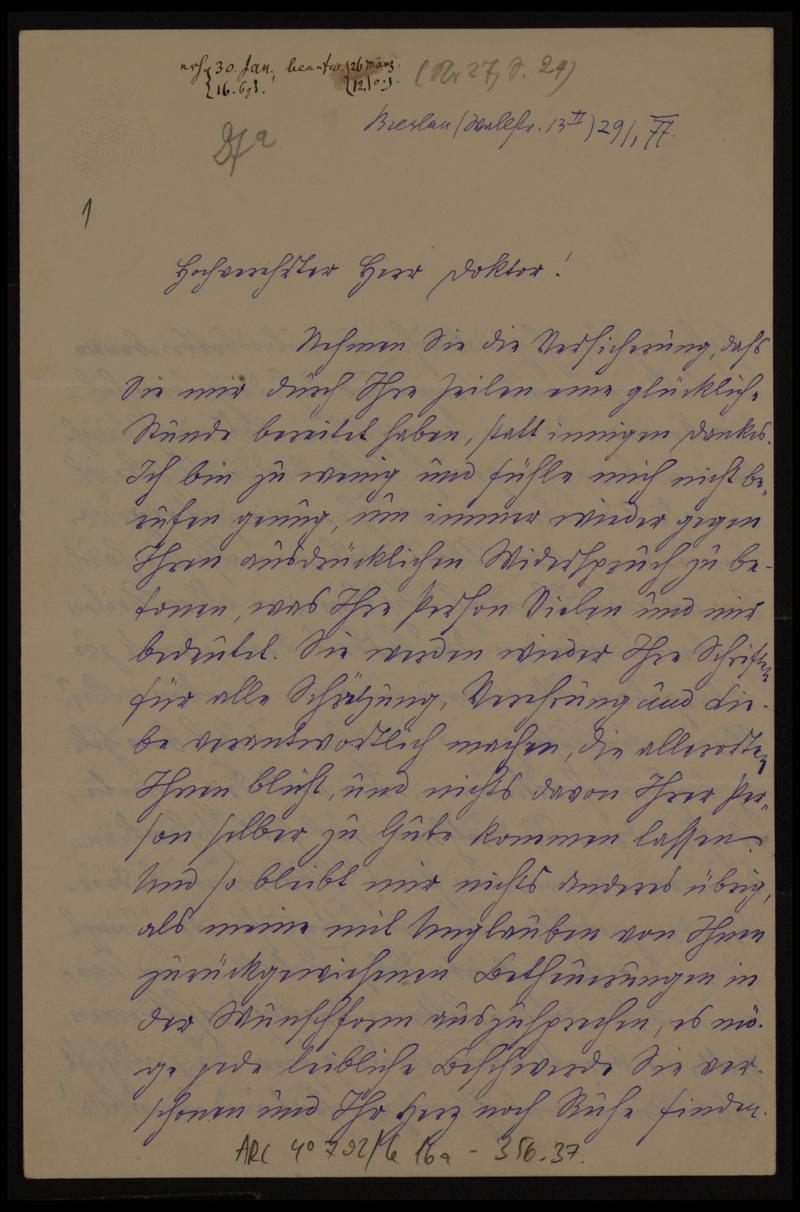 erh. 30. Jan., beantw. 26 März
16. 12.
(Nr 27, S. 24)
Breslau (Wallstr. 13 II) 29/1 77.
1
Hochverehrter Herr Doktor!
Nehmen Sie die Versicherung, daß
Sie mir durch Ihre Zeilen eine glückliche
Stunde bereitet haben, statt innigen Dankes.
Ich bin zu wenig und fühle mich nicht be-
rufen genug, um immer wieder gegen
Ihren ausdrücklichen Widerspruch zu be-
tonen, was Ihre Person Vielen und mir
bedeutet. Sie werden wieder Ihre Schriften
für alle Schätzung, Verehrung und Lie-
be verantwortlich machen, die allerorten
Ihnen blüht, und nichts davon Ihrer Per-
son selber zu Gute kommen lassen.
Und so bleibt mir nichts anderes übrig,
als meine mit Unglauben von Ihnen
zurückgewiesenen Betheuerungen in
der Wunschform auszusprechen, es mö-
ge jede leibliche Beschwerde Sie ver-
schonen und Ihr Herz noch Ruhe finden.
ARC 4° 792/ 16a - 356.37.